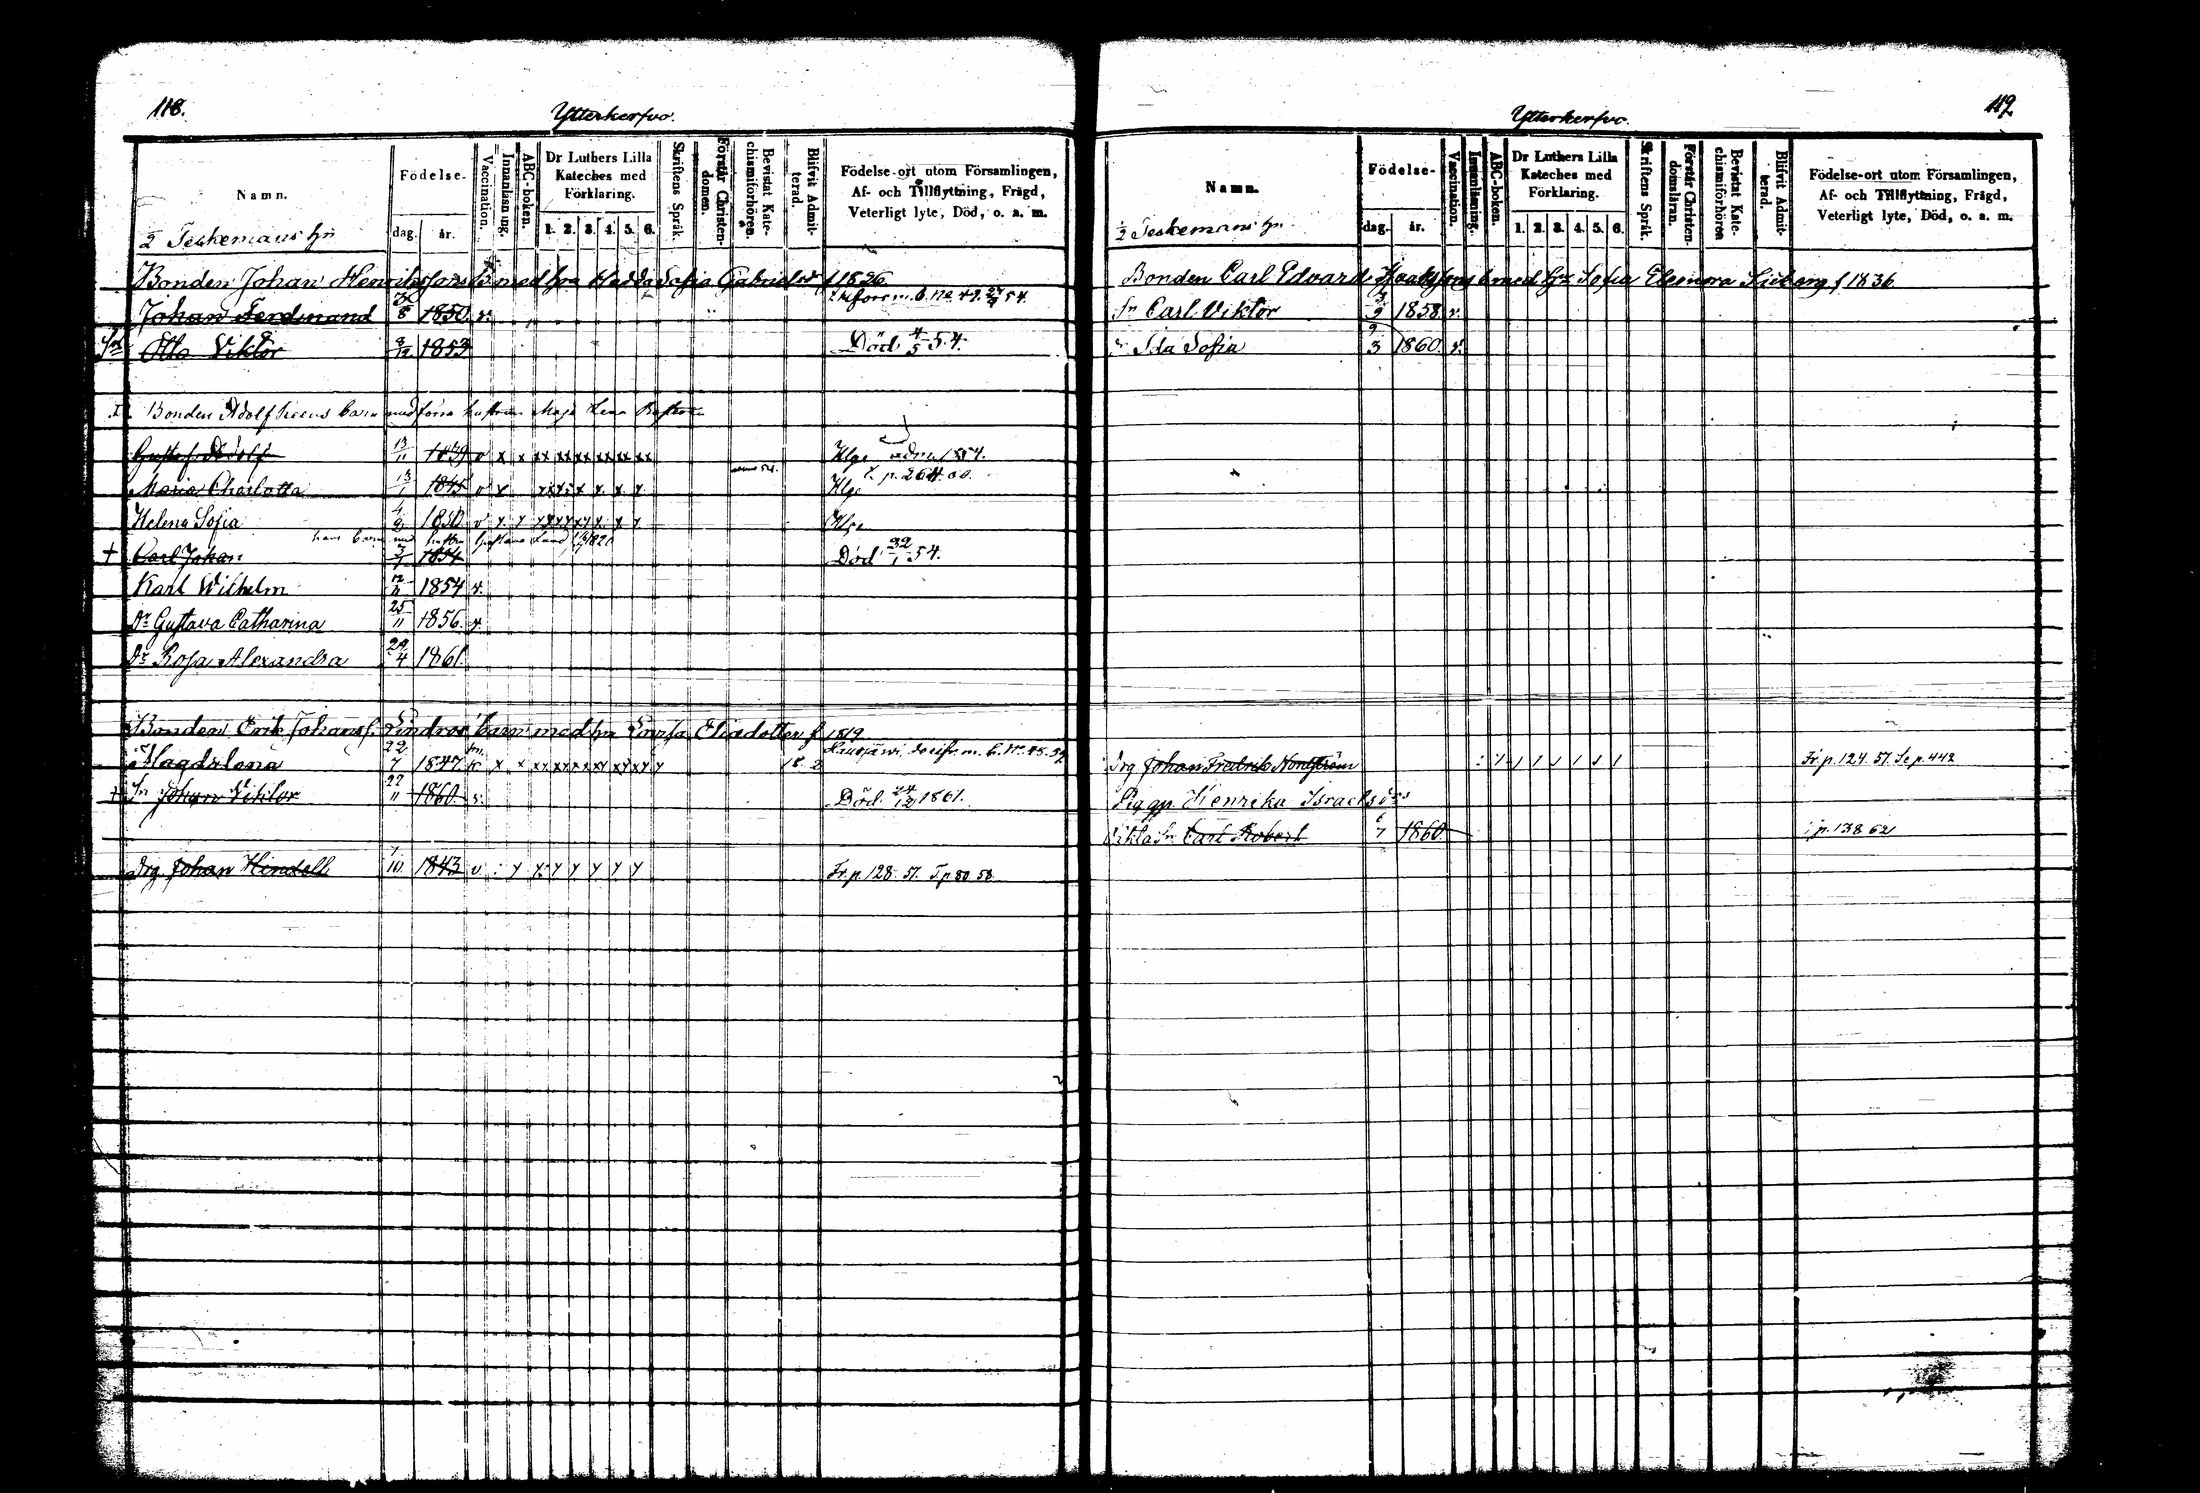 118.
Ytterkerfvo.
Namn.
Födelse-
dag. år.
Vaccination.
Innanläsnung.
ABC-boken.
Dr Luthers Lilla
Kateches med
Förklaring.
1. 2. 3. 4. 5. 6.
Skriftens Språk.
Förstår Christen-
domen.
Bevistat Kate-
chismiförhören.
Blifvit Admit-
terad.
Födelse-ort utom Församlingen,
Af- och Tillflyttning, Frägd,
Veterligt lyte, Död, o. a. m.
1/2 Teskemans hn
Bonden Johan Henrikssons b med hu Hedda Sofia Gabrielsdr f 1826
Johan Ferdinand 8 1850 v.
Otto Viktor 8/12 1853 Död 4/5 54.
Bonden Adolf barn med förra hustrun Maja Lena
Gustaf Adolf 13/11 1839 v x x xx xx xx xx xx xx Hlge adm. 1854.
Maria Charlotta 13/1 1845 v x Hlge p. 264. 60.
Helena Sofia 1850 v x x Hlge
hans barn med hustru Gustava Lund 1821
+ Carl Johan 1854 Död 54.
Karl Wilhelm 1854 v.
Dr Gustava Catharina 25/11 1856 v.
Dr Rosa Alexandra 29/4 1861.
Bonden Erik Johans s. Lindros barn med hu Lovisa Eliædotter f 1819
Magdalena 22/7 1847 x x xx
+ Sn Johan Viktor 22/11 1860 v. Död 24/12 1861.
Drg Johan Hindell 1/10 1843 v Fr. p. 128. 57. T p 80 58
119
Ytterkerfvo.
Namn.
Födelse-
dag. år.
Vaccination.
Innanläsning.
ABC-boken.
Dr Luthers Lilla
Kateches med
Förklaring.
1. 2. 3. 4. 5. 6.
Skriftens Språk.
Förstår Christen-
domsläran.
Bevistat Kate-
chismiförhören
Blifvit Admit-
terad.
Födelse-ort utom Församlingen,
Af- och Tillflyttning, Frägd,
Veterligt lyte, Död, o. a. m.
1/2 Teskemans hn
Bonden Carl Edvard Isakssons b med hu Sofia Eleonora f 1836
Sn Carl Viktor 9 1858 v.
Dr Ida Sofia 9/3 1860 v.
Drg Johan Fredrik Nordström Fr. p. 124. 57. Se p. 442
Pigan Henrika Israelsdrs
oäkta Sn Carl Robert 6/7 1860 p. 138 62